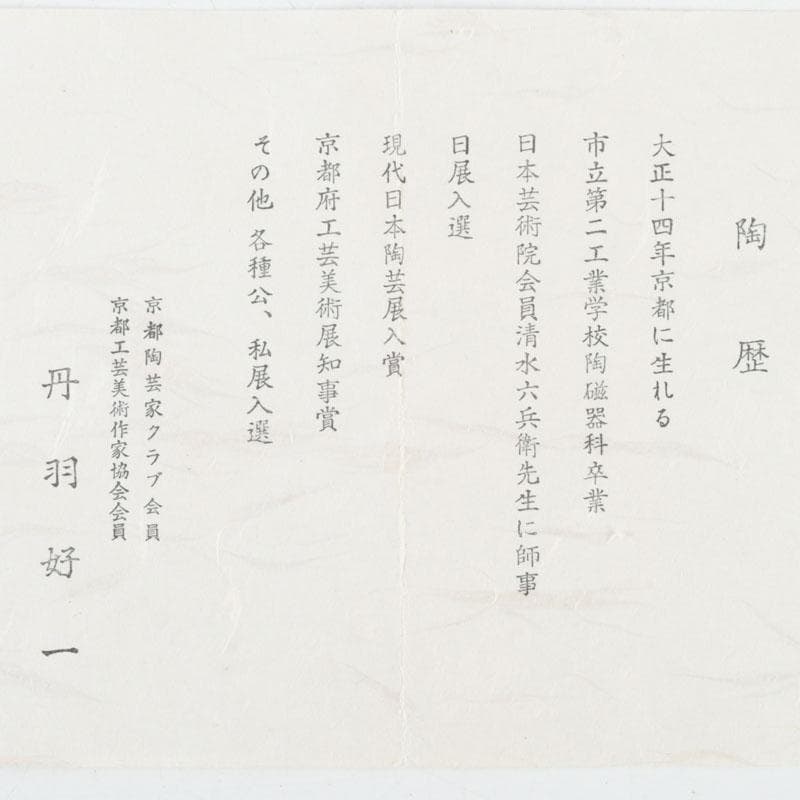 陶歴
大正十四年京都に生れる
市立第二工業学校陶磁器科卒業
日本芸術院会員清水六兵衛先生に師事
日展入選
現代日本陶芸展入賞
京都府工芸美術展知事賞
その他 各種公、私展入選
京都陶芸家クラブ会員
京都工芸美術作家協会会員
丹羽好一